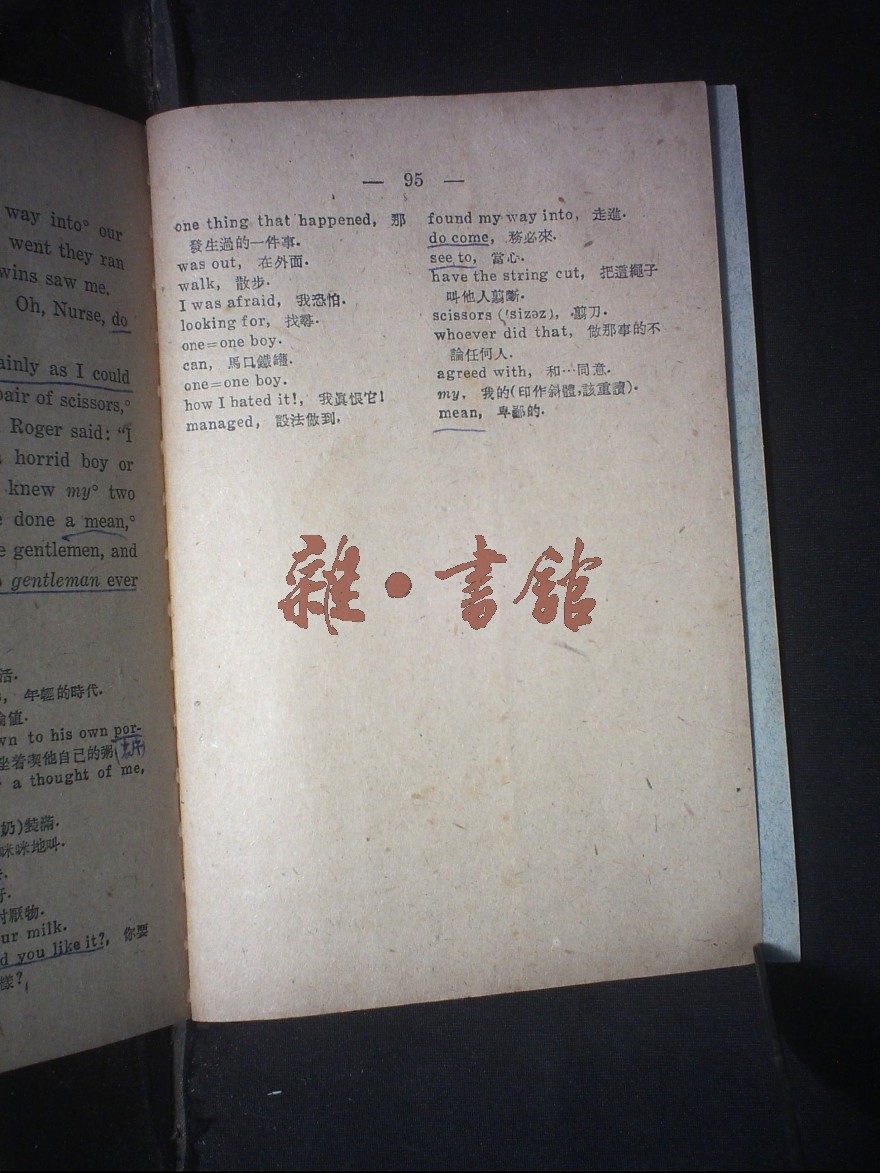 way into° our
went they ran
wins saw me.
Oh, Nurse, do
ainly as I could
pair of scissors,°
Roger said: "I
horrid boy or
knew my° two
done a mean,°
gentlemen, and
gentleman ever
活.
年輕的時代.
值.
wn to his own por-
坐着喫他自己的粥
a thought of me,
奶)裝滿.
咪咪地叫.
討厭物.
ur milk.
d you like it?, 你要
樣?
— 95 —
one thing that happened, 那
發生過的一件事.
was out, 在外面.
walk, 散步.
I was afraid, 我恐怕.
looking for, 找尋.
one=one boy.
can, 馬口鐵罐.
one=one boy.
how I hated it!, 我眞恨它!
managed, 設法做到.
found my way into, 走進.
do come, 務必來.
see to, 當心.
have the string cut, 把這繩子
叫他人剪斷.
scissors ('sizəz), 剪刀.
whoever did that, 做那事的不
論任何人.
agreed with, 和…同意.
my, 我的(印作斜體,該重讀).
mean, 卑鄙的.
雜·書館